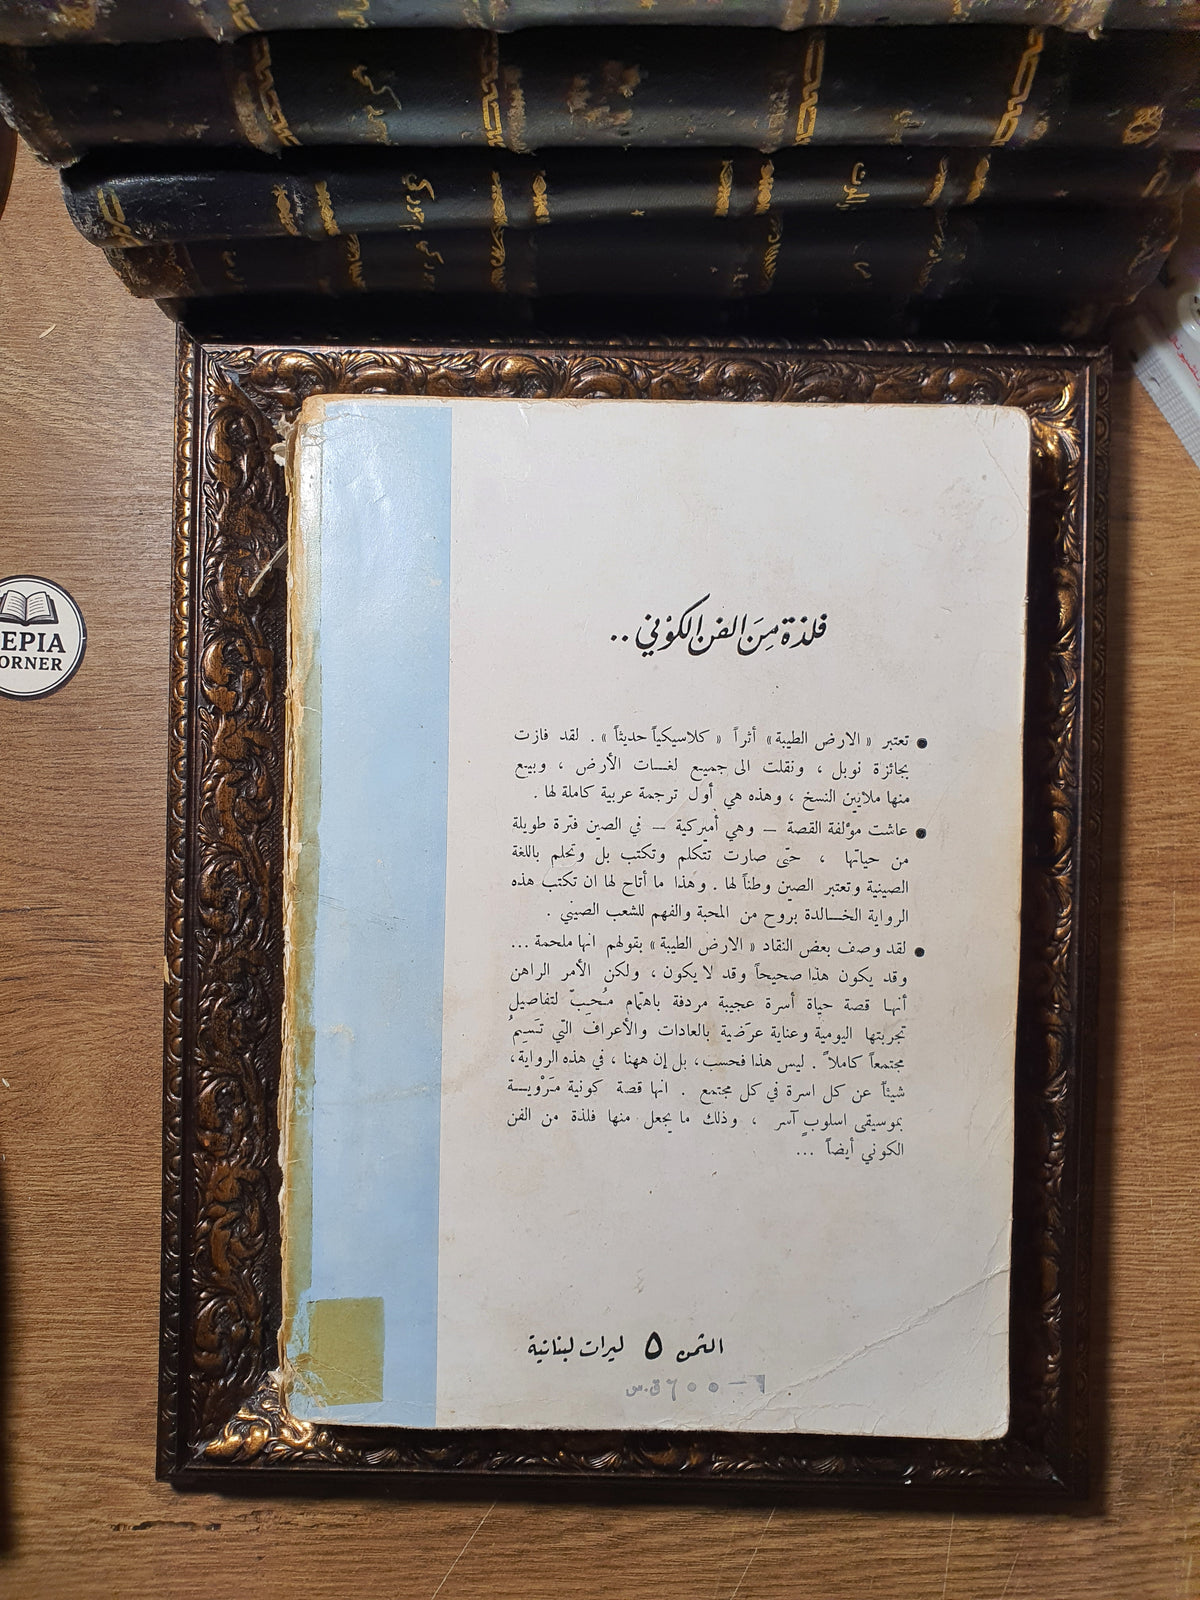 EPIA
ORNER
فلذة مِنَ الفن الكوْني ..
● تعتبر « الارض الطيبة » أثراً « كلاسيكياً حديثاً » . لقد فازت
بجائزة نوبل ، ونقلت الى جميع لغـات الأرض ، وبيع
منها ملايين النسخ ، وهذه هي أول ترجمة عربية كاملة لها .
● عاشت مؤلفة القصة – وهي أميركية – في الصين فترة طويلة
من حياتها ، حتى صارت تتكلم وتكتب بل وتحلم باللغة
الصينية وتعتبر الصين وطناً لها . وهذا ما أتاح لها ان تكتب هذه
الرواية الخـالدة بروح من المحبة والفهم للشعب الصيني .
● لقد وصف بعض النقاد « الارض الطيبة » بقولهم انها ملحمة ...
وقد يكون هذا صحيحاً وقد لا يكون ، ولكن الأمر الراهن
أنهـا قصة حياة أسرة عجيبة مردفة باهتمام مُحِبّ لتفاصيل
تجربتها اليومية وعناية عرَضية بالعادات والأعراف التي تَسِيمُ
مجتمعاً كاملاً . ليس هذا فحسب ، بل إن ههنا ، في هذه الرواية ،
شيئاً عن كل اسرة في كل مجتمع . انها قصة كونية مَرْويـة
بموسيقى اسلوبٍ آسر ، وذلك ما يجعل منها فلذة من الفن
الكوني أيضاً ...
الثمن ٥ ليرات لبنانية
٦٠٠ ق.س